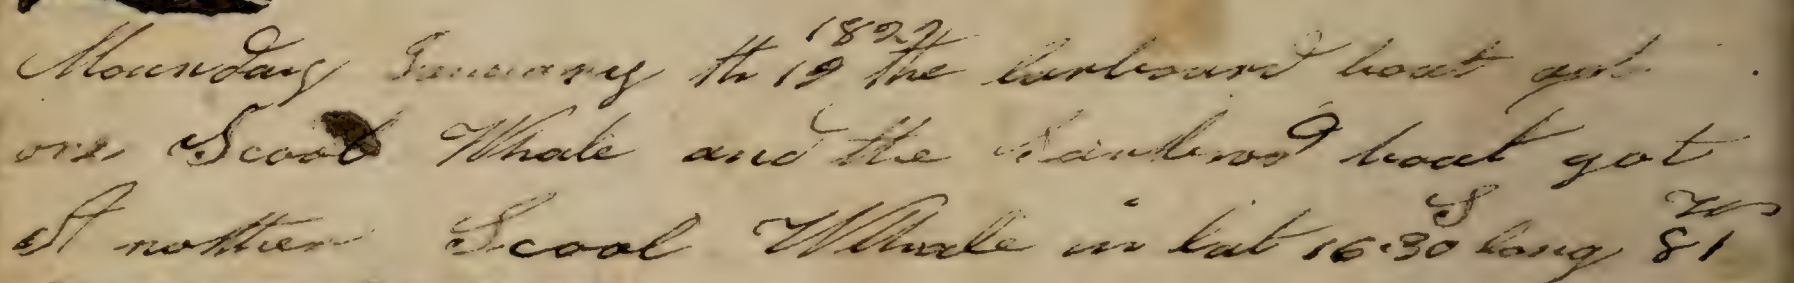 Mounday January th 19 1822 the larboard boat got
one Scool Whale and the Starbord boat got
A nother Scool Whale in lat 16-30 S long 81 W